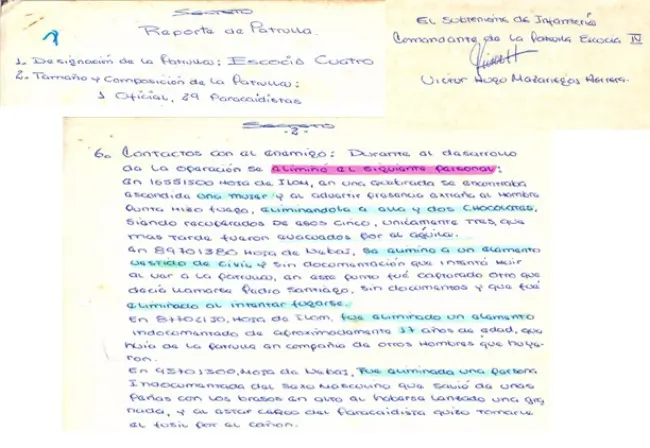 Secreto
Reporte de Patrulla.
1. Designación de la Patrulla: Escocia Cuatro
2. Tamaño y Composición de la Patrulla:
1 Oficial, 29 Paracaidistas
El Subteniente de Infantería
Comandante de la Patrulla Escocia IV
Victor Hugo Mazariegos Herrera.
Secreto
-2-
6. Contactos con el enemigo: Durante el desarrollo
de la operación se eliminó el siguiente personal:
En 16551500 Hoja de Ilom, en una quebrada se encontraba
escondida una mujer y al advertir presencia extraña el Hombre
Punta Hizo fuego, eliminandola a ella y dos CHOCOLATES,
siendo recuperados de esos cinco, unicamente tres, que
mas tarde fueron evacuados por el aguila.
En 89701380 Hoja de Nebaj, se elimino a un elemento
vestido de Civil y sin documentación que intentó Huir
al ver a la patrulla, en este punto fué capturado otro que
decía llamarse Pedro Santiago, sin documentos y que fué
eliminado al intentar fugarse.
En 87702130, Hoja de Ilom, fue eliminado un elemento
indocumentado de aproximadamente 17 años de edad, que
huía de la patrulla en compañia de otros Hombres que huye-
ron.
En 95701300, Hoja de Nebaj, Fue eliminada una persona
Indocumentada del sexo Masculino que salió de unas
Peñas con los brasos en alto al haberse lanzado una gra
nada, y al estar cerca del Paracaidista quizo tomarle
el fusil por el cañon.